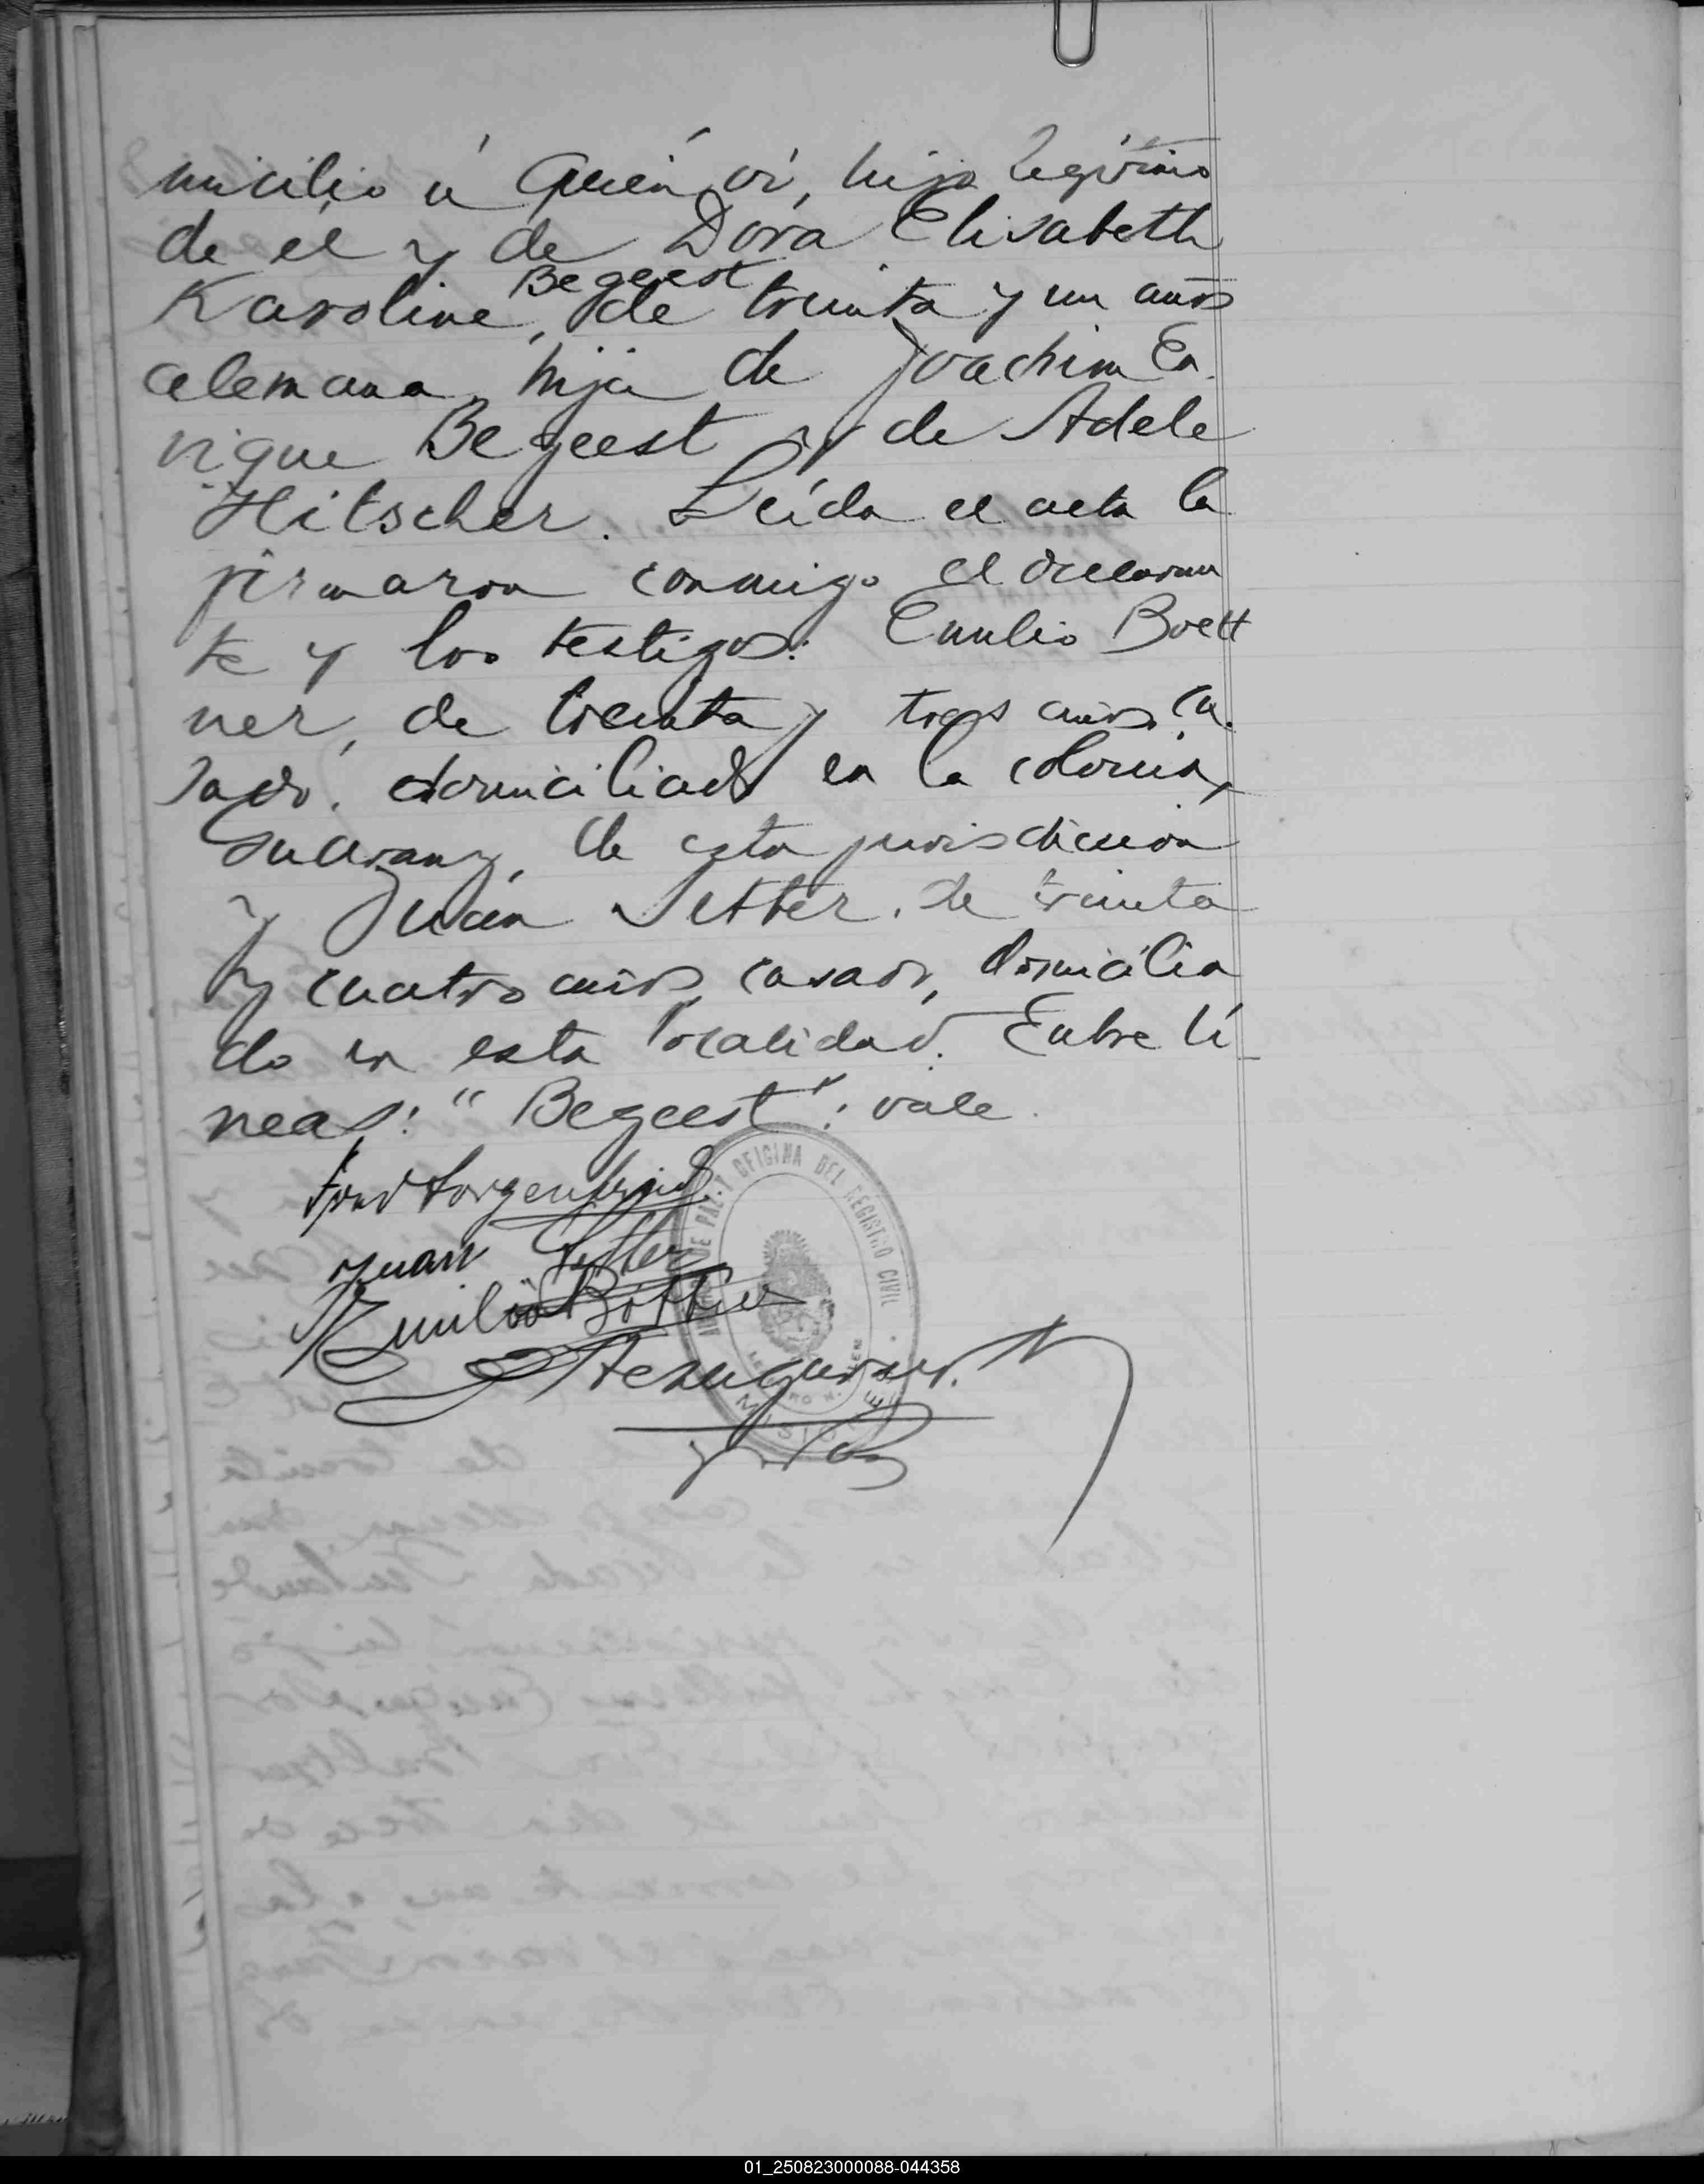 micilio á quién ví, hijo legítimo
de él y de Dora Elisabeth
Begeest
Karoline, de treinta y un años
alemana, hija de Joachim En
rique Begeest y de Adele
Hitscher. Leída el acta la
firmaron conmigo el declaran
te y los testigos: Emilio Boett
ner, de treinta y tres años, ca
sado, domiciliado en la colonia
de esta jurisdicción
y Juan Setter, de treinta
y cuatro años, casado, domicilia
do en esta localidad. Entre lí
neas: "Begeest": vale.
Juan Setter
Emilio Böttner
DE PAZ Y OFICINA DEL REGISTRO CIVIL
MISIONES
01_250823000088-044358